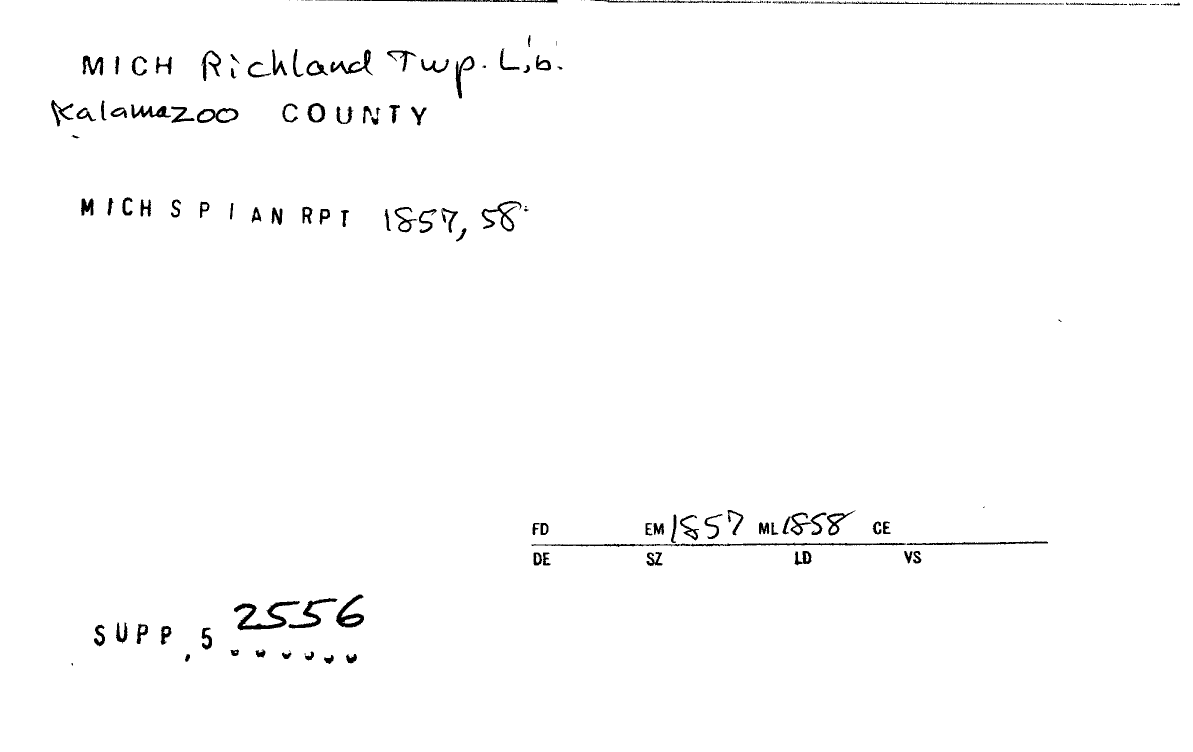 MICH Richland Twp. Lib.
Kalamazoo COUNTY
MICH S P I AN RPT 1857, 58
FD EM 1857 ML 1858 CE
DE SZ LD VS
SUPP, 5 2556